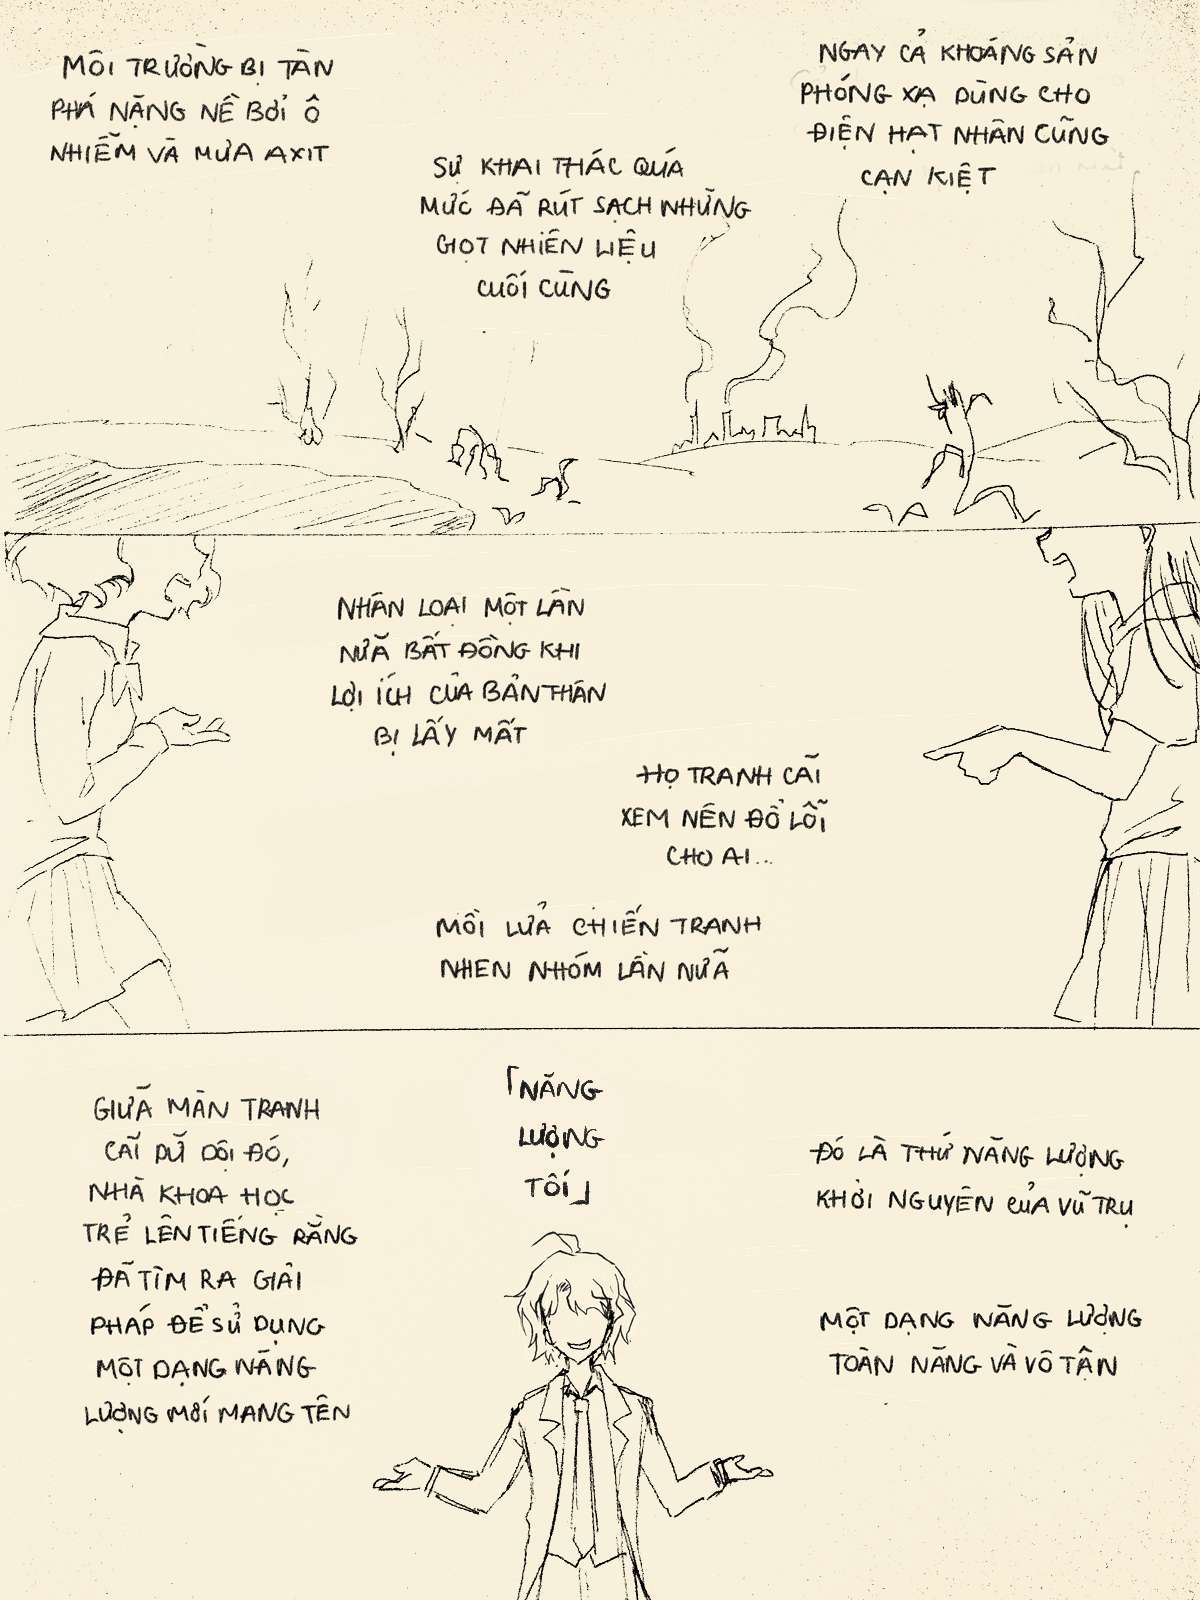 MÔI TRƯỜNG BỊ TÀN
PHÁ NẶNG NỀ BỞI Ô
NHIỄM VÀ MƯA AXIT
SỰ KHAI THÁC QUÁ
MỨC ĐÃ RÚT SẠCH NHỮNG
GIỌT NHIÊN LIỆU
CUỐI CÙNG
NGAY CẢ KHOÁNG SẢN
PHÓNG XẠ DÙNG CHO
ĐIỆN HẠT NHÂN CŨNG
CẠN KIỆT
NHÂN LOẠI MỘT LẦN
NỮA BẤT ĐỒNG KHI
LỢI ÍCH CỦA BẢN THÂN
BỊ LẤY MẤT
HỌ TRANH CÃI
XEM NÊN ĐỔ LỖI
CHO AI...
MỒI LỬA CHIẾN TRANH
NHEN NHÓM LẦN NỮA
GIỮA MÀN TRANH
CÃI DỮ DỘI ĐÓ,
NHÀ KHOA HỌC
TRẺ LÊN TIẾNG RẰNG
ĐÃ TÌM RA GIẢI
PHÁP ĐỂ SỬ DỤNG
MỘT DẠNG NĂNG
LƯỢNG MỚI MANG TÊN
「NĂNG
LƯỢNG
TỐI」
ĐÓ LÀ THỨ NĂNG LƯỢNG
KHỞI NGUYÊN CỦA VŨ TRỤ
MỘT DẠNG NĂNG LƯỢNG
TOÀN NĂNG VÀ VÔ TẬN